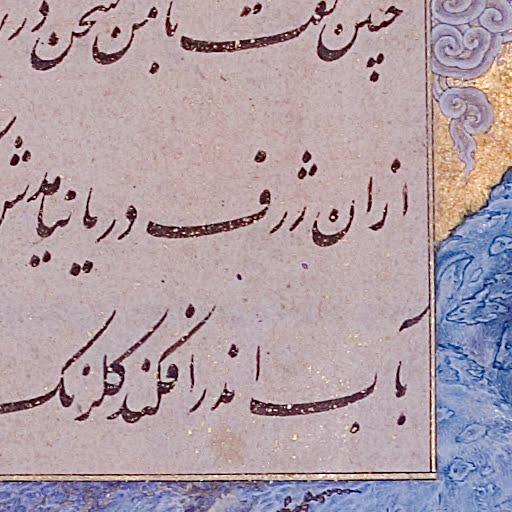 چنین گفت با من سخن در
ازان ژرف دریا نیامدش
بآب اندر افکند گلرنگ